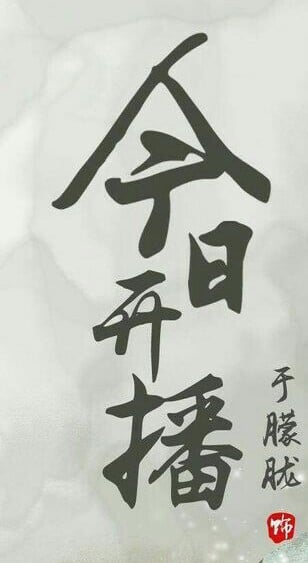 今日开播
于朦胧
饰